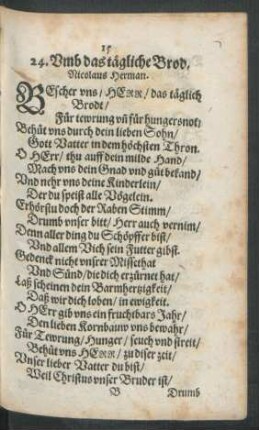 15
24. Vmb das tägliche Brod,
Nicolaus Herman.
BEscher vns/ HERR/ das täglich
Brodt/
Für tewrung vñ für hungersnot/
Behüt vns durch dein lieben Sohn/
Gott Vatter in dem höchsten Thron.
O HErr/ thu auff dein milde Hand/
Mach vns dein Gnad vnd güt bekand/
Vnd nehr vns deine Kinderlein/
Der du speist alle Vögelein.
Erhörstu doch der Raben Stimm/
Drumb vnser bitt/ Herr auch vernim/
Denn aller ding du Schöpffer bist/
Vnd allem Vieh sein Futter gibst.
Gedenck nicht vnsrer Missethat
Vnd Sünd/ die dich erzürnet hat/
Laß scheinen dein Barmhertzigkeit/
Daß wir dich loben/ in ewigkeit.
O HErr gib vns ein fruchtbars Jahr/
Den lieben Kornbaw vns bewahr/
Für Tewrung/ Hunger/ seuch vnd streit/
Behüt vns HERR/ zu diser zeit/
Vnser lieber Vatter du bist/
Weil Christus vnser Bruder ist/
B Drumb